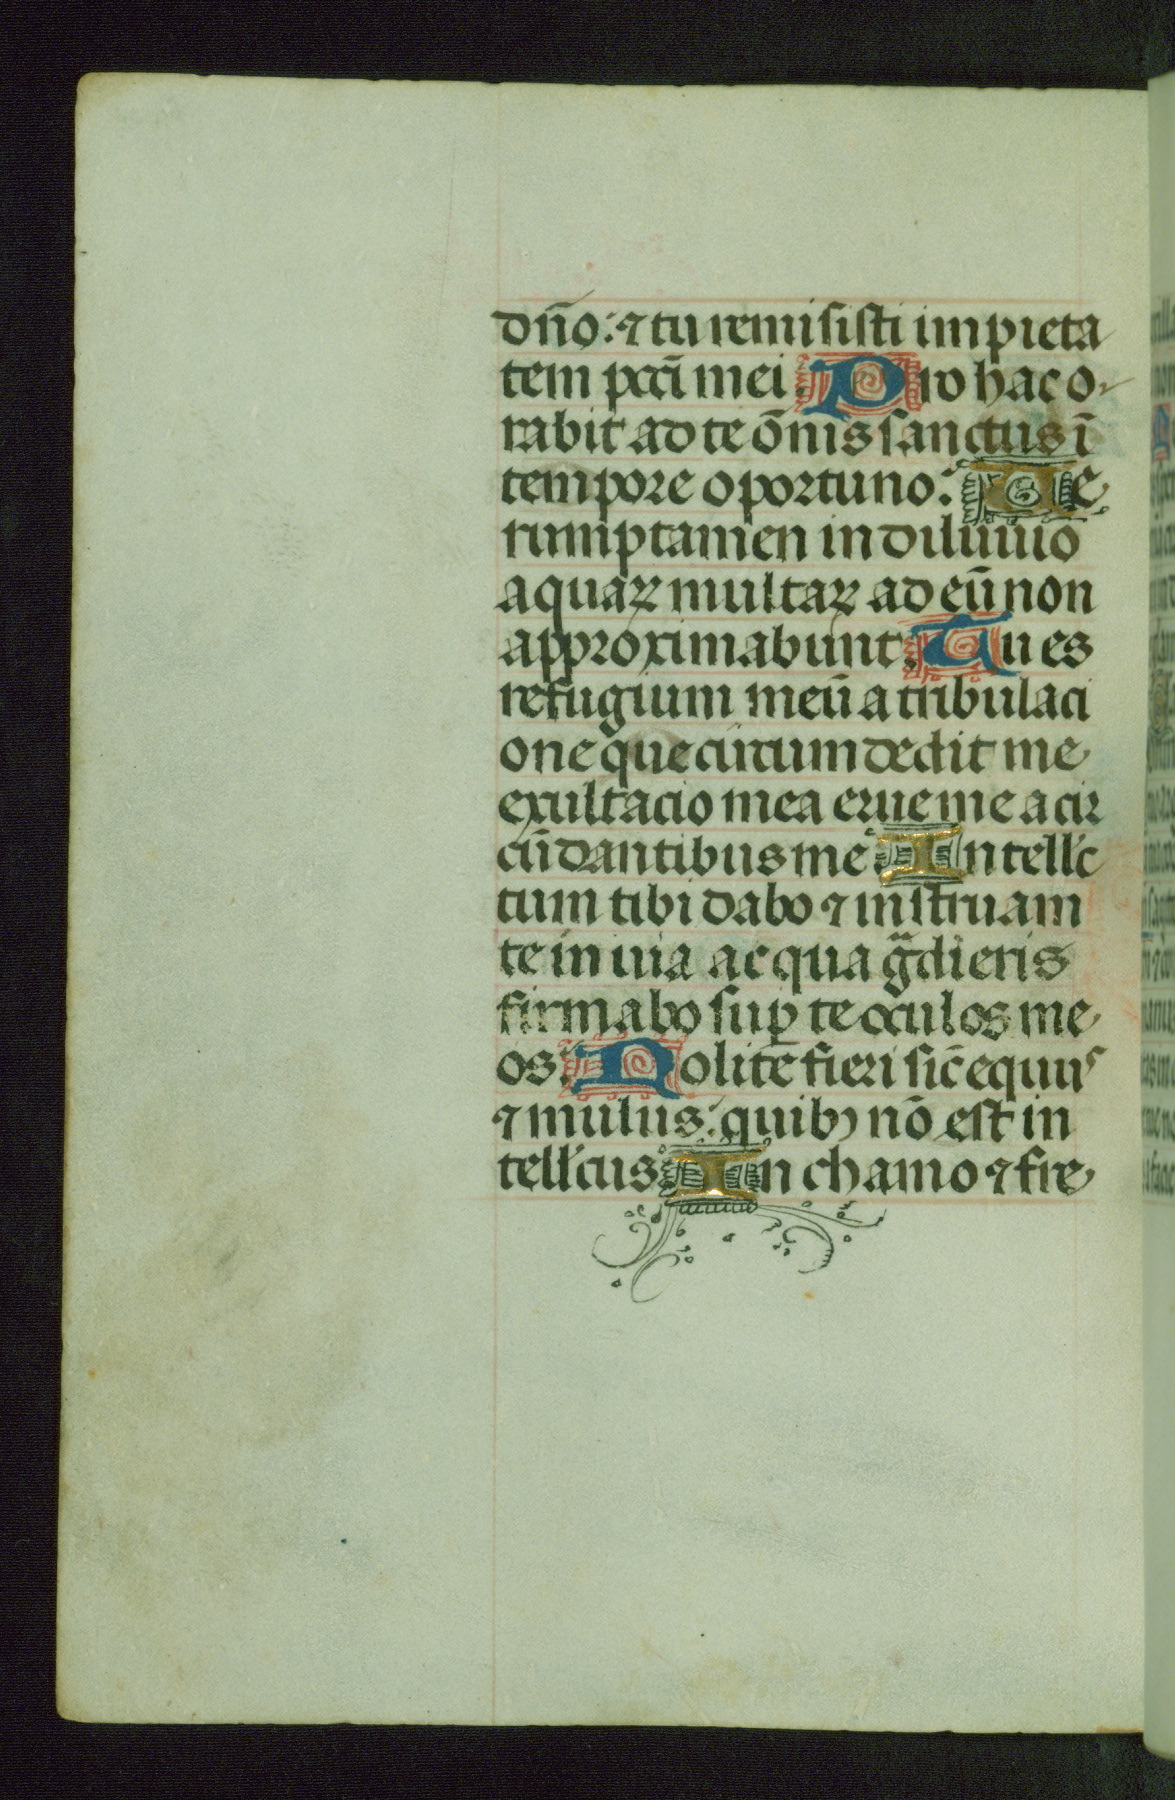 dn̄o: ⁊ tu remisisti impieta
tem pcc̄i mei. Pro hac o-
rabit ad te om̄is sanctus ī
tempore oportuno. Ue
rumptamen in diluuio
aquaꝝ multaꝝ ad eū non
approximabunt. Tu es
refugium meū a tribulaci
one que circumdedit me
exultacio mea erue me a cir
cūdantibus me. Intellc̄
tum tibi dabo ⁊ instruam
te in uia ac qua gᷓdieris
firmabo suꝑ te oculos me
os. Nolite fieri sic̄ equus
⁊ mulus: quibꝫ nō est in
tellc̄tus. In chamo ⁊ fre